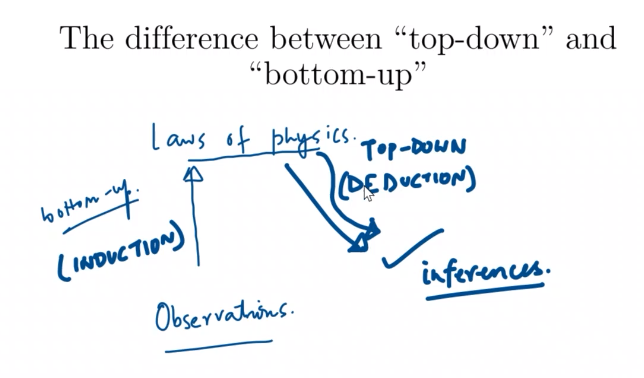 The difference between “top-down” and
“bottom-up”
Laws of physics.
TOP-DOWN
(DEDUCTION)
bottom-up.
(INDUCTION)
inferences.
Observations.